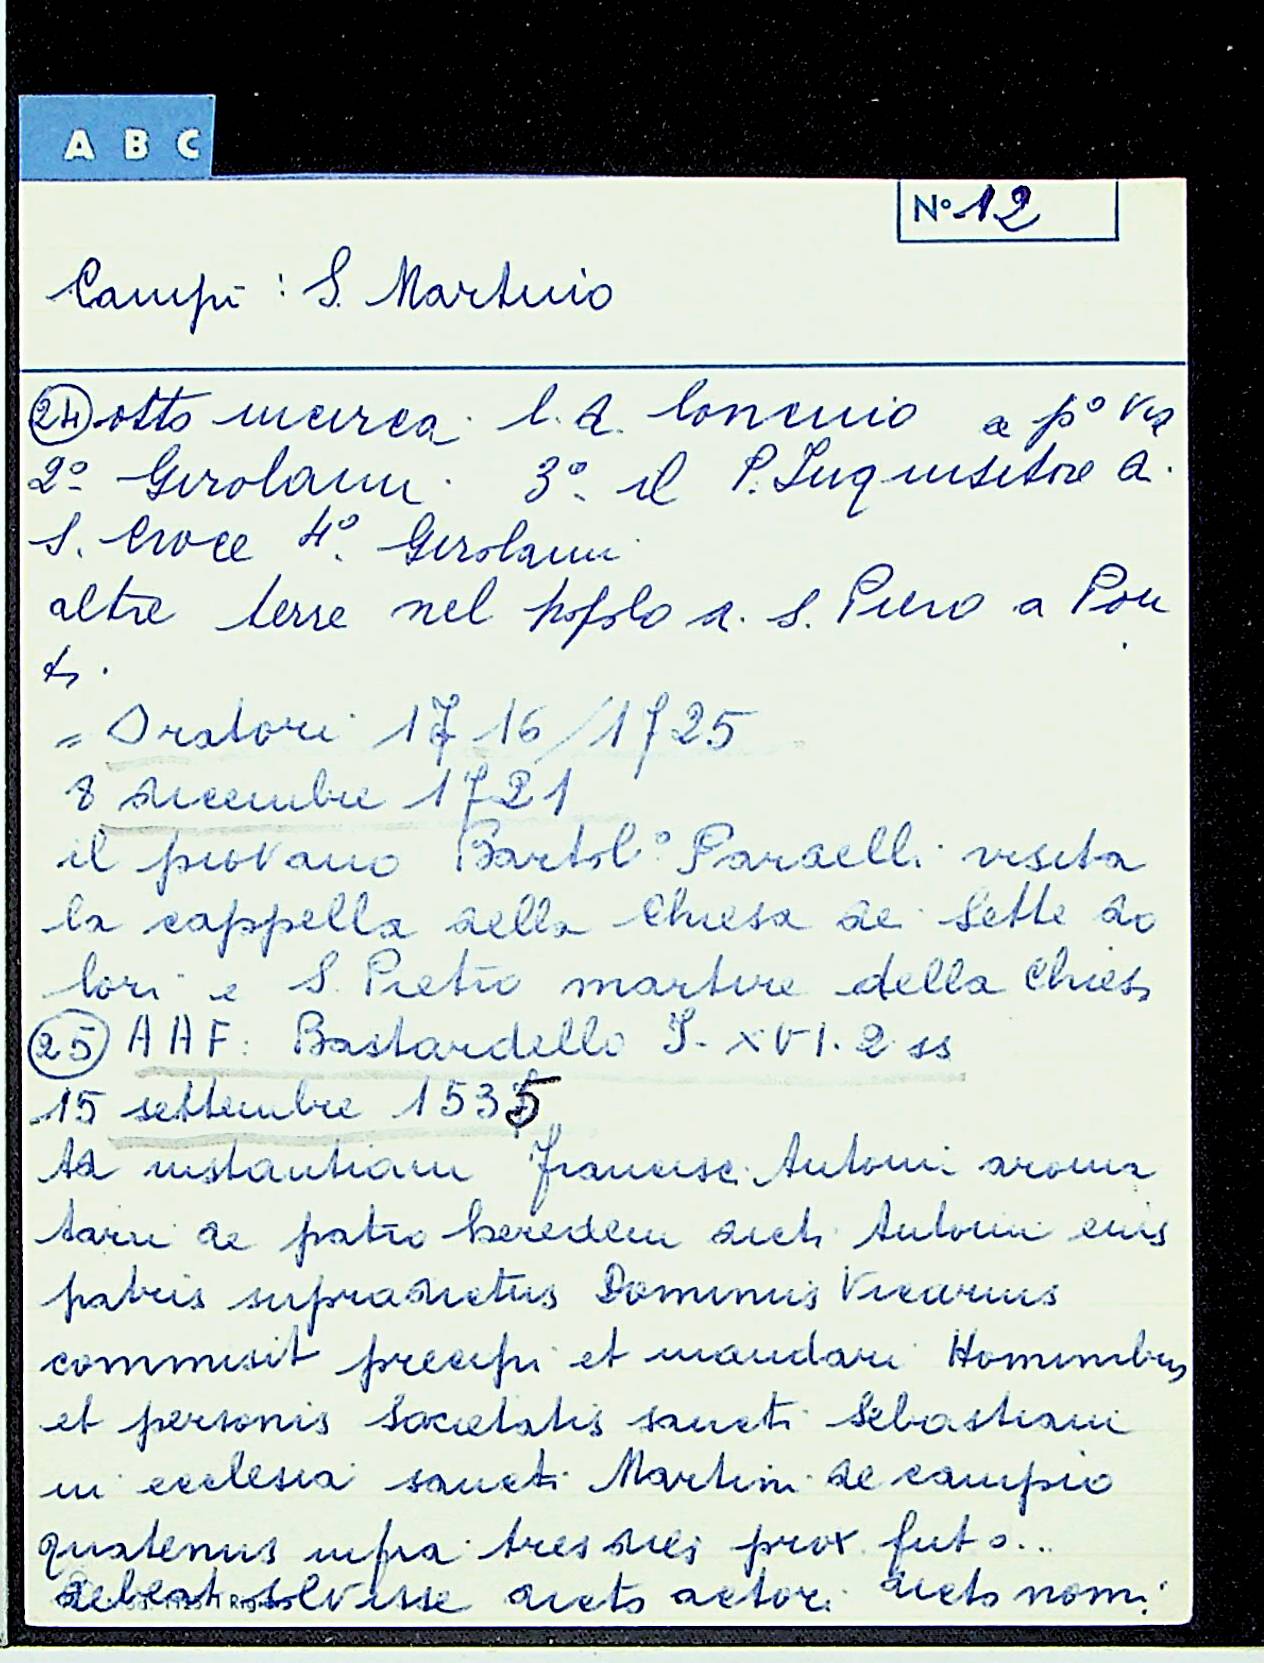 A B C
N° 12
Campi : S. Martino
24 otto incirca. l. d. Concino a p° Via
2° Girolami. 3° il P. Inquisitore d.
S. Croce 4° Girolami
altre terre nel popolo d. S. Piero a Pon
ti.
= Oratori 1716/1725
8 dicembre 1721
il piovano Bartol° Paradelli visita
la cappella della Chiesa dei Sette do
lori e S. Pietro martire della Chies
25 AAF: Bastardello I. XVI. 2 ss
15 settembre 1535
ad instantiam Francisci Antoni aroma
tarii de patro heredem dicti Antonii eius
patris supradictus Dominus Vicarius
commisit precipi et mandari Hominibus
et personis Societatis sancti Sebastiani
in ecclesia sancti Martini de campio
quatenus infra tres dies prox. fut o...
debeat solvisse dicto actori dicto nomi